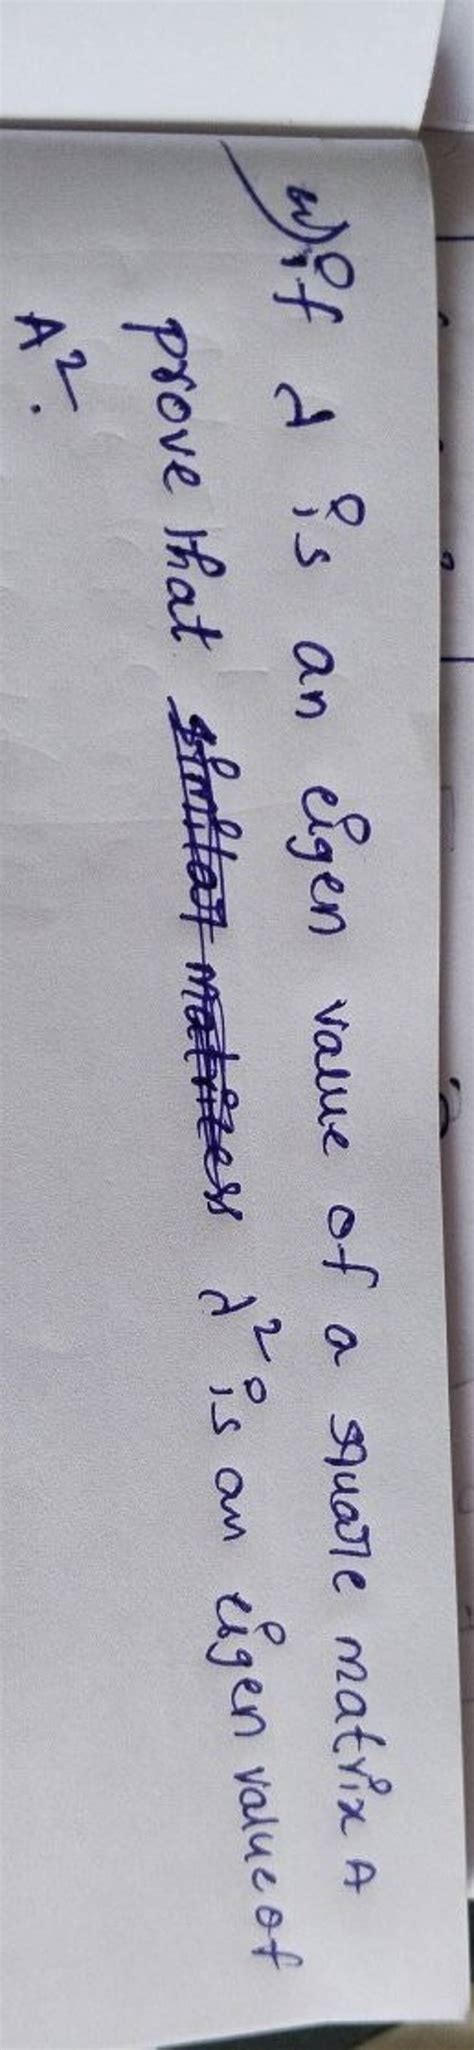 w) if λ is an eigen value of a square matrix A
prove that similar matrices λ² is an eigen value of
A².